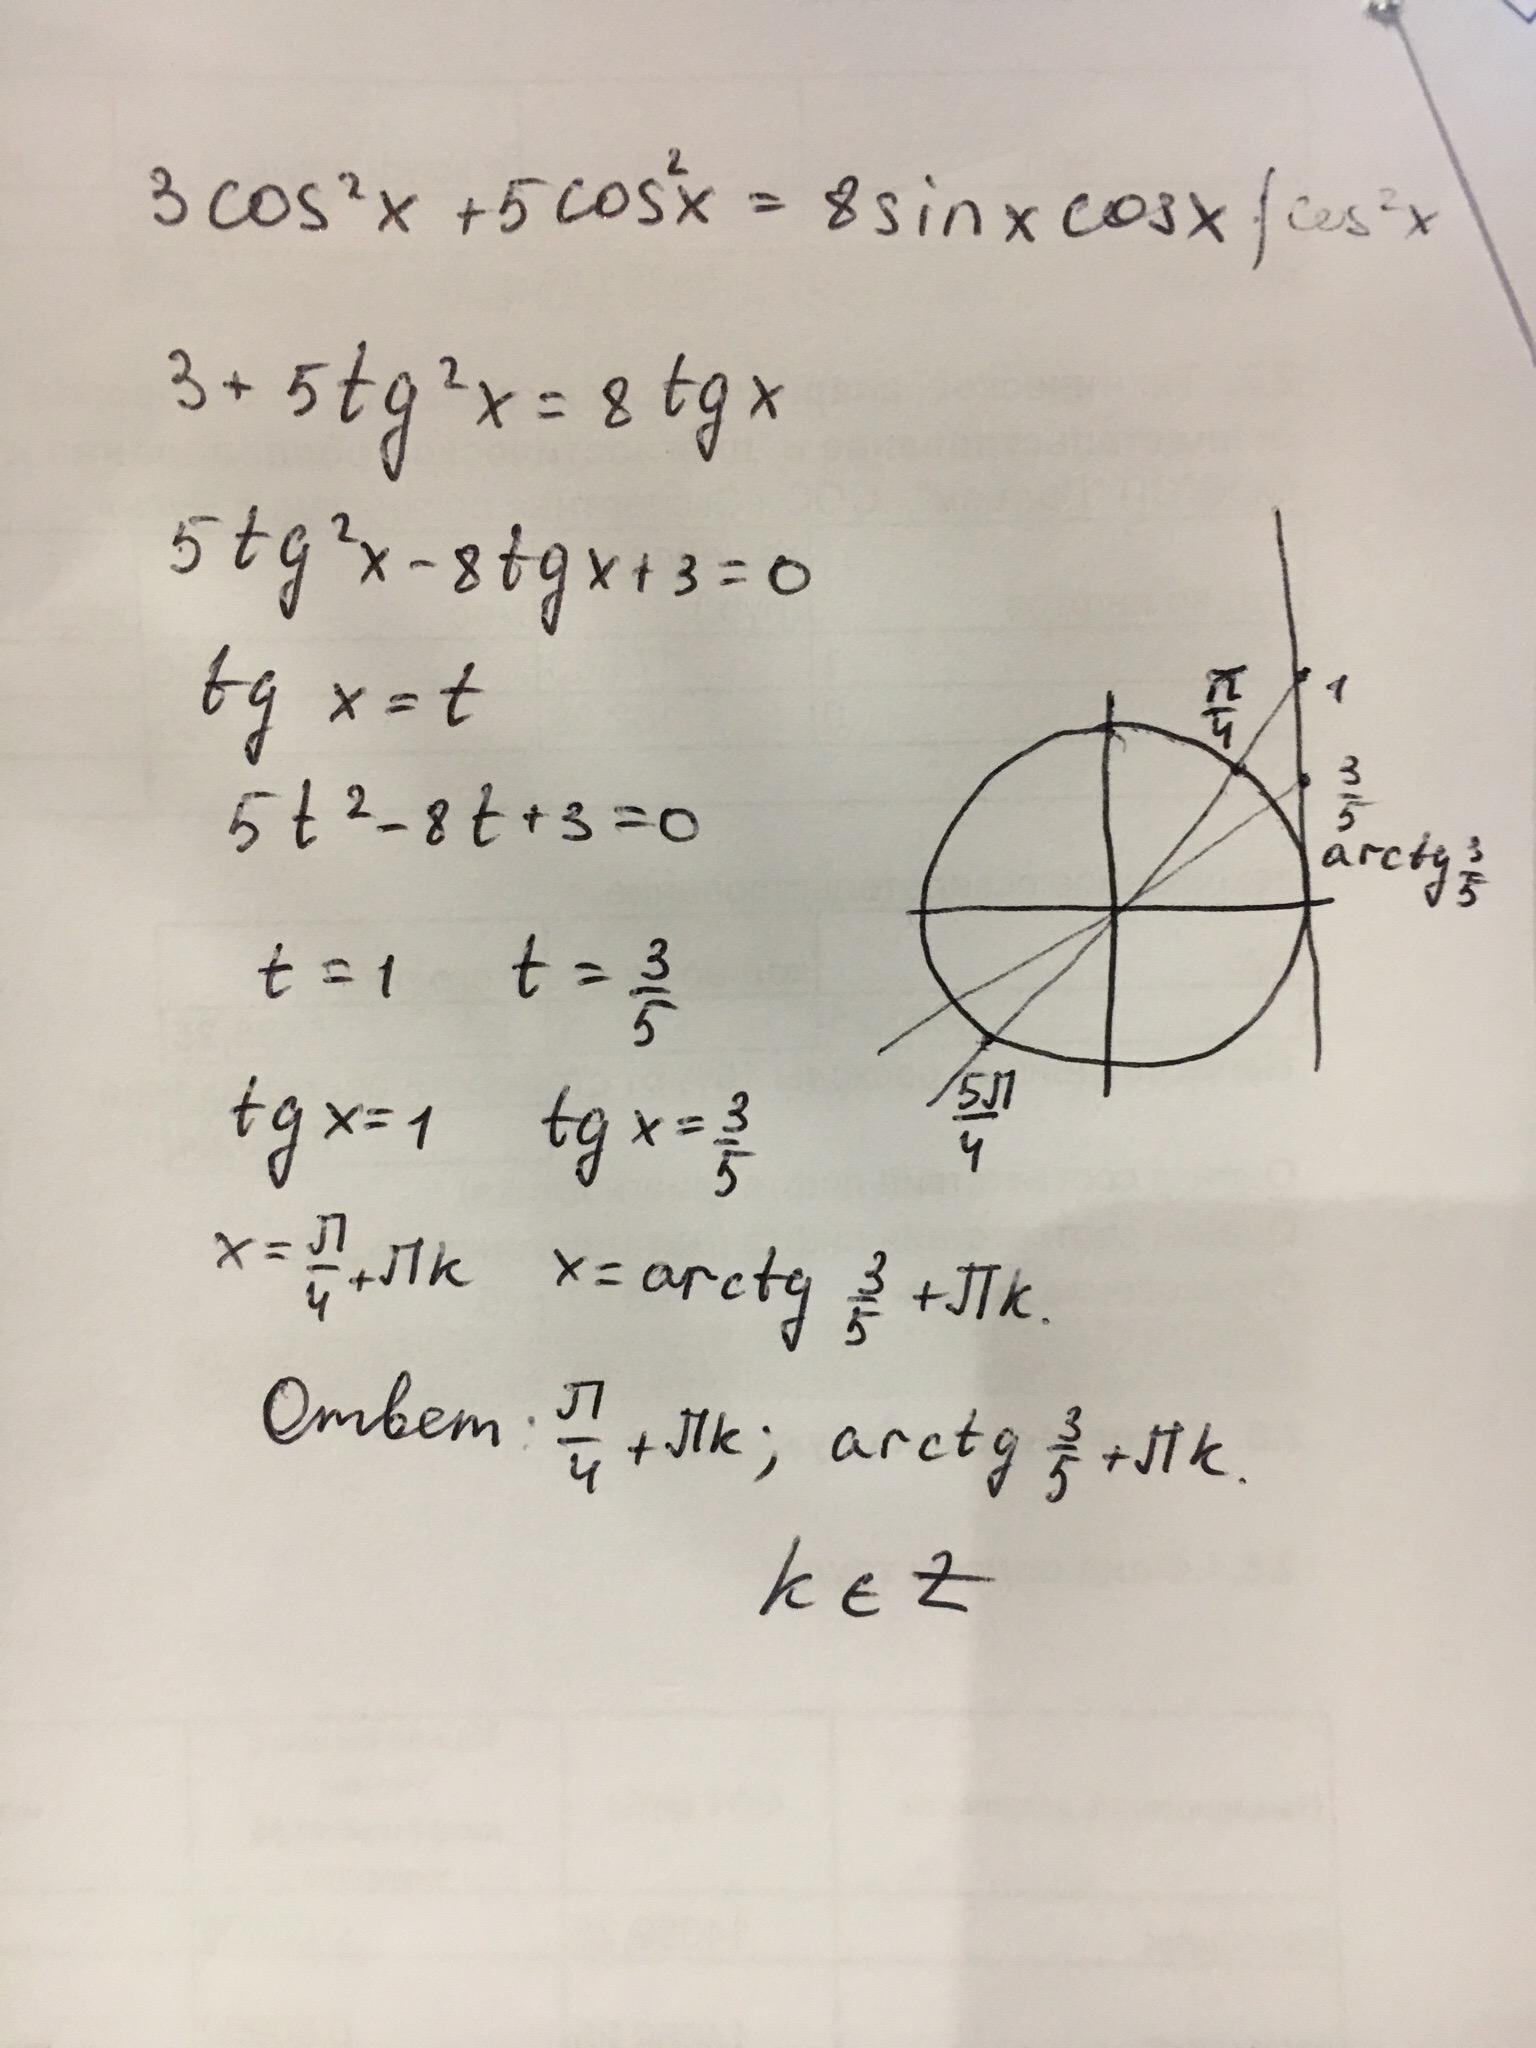 3cos²x + 5cos²x = 8sinxcosx /cos²x
3 + 5tg²x = 8tgx
5tg²x - 8tgx + 3 = 0
tg x = t
5t² - 8t + 3 = 0
t = 1 t = 3/5
tgx = 1 tgx = 3/5
x = π/4 + πk x = arctg 3/5 + πk.
Ответ: π/4 + πk; arctg 3/5 + πk.
k ∈ Z
π/4
1
3/5
arctg 3/5
5π/4